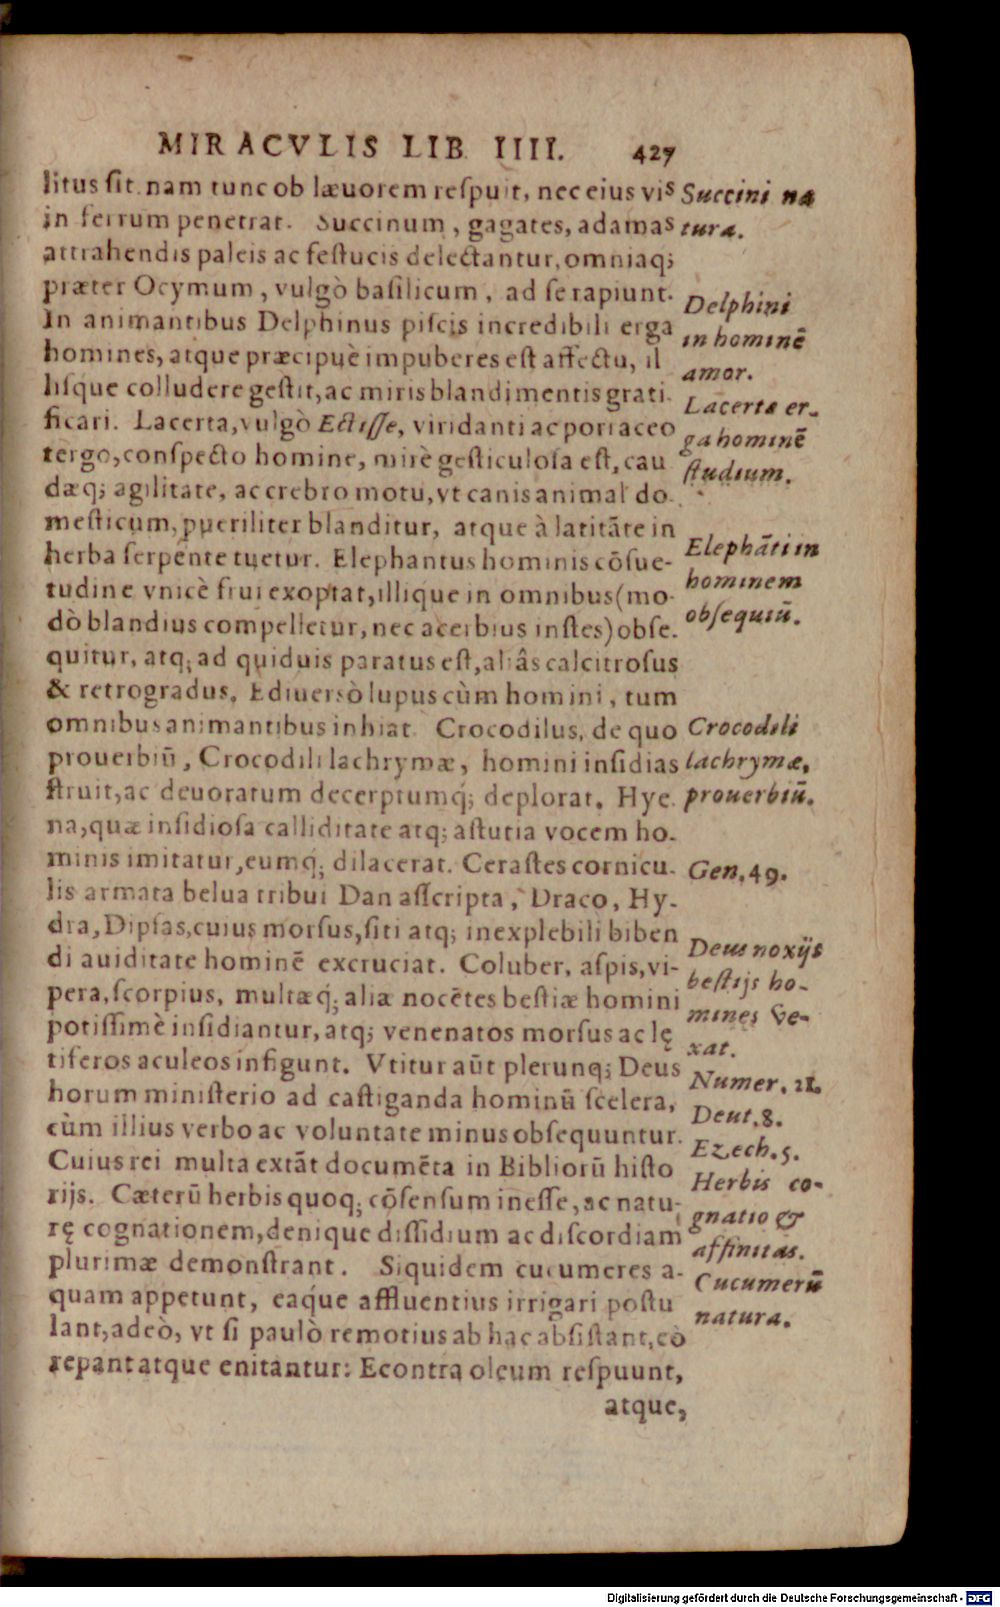 MIRACVLIS LIB IIII. 427
litus sit. nam tunc ob læuorem respuit, nec eius vis
in ferrum penetrat. Succinum, gagates, adamas
attrahendis paleis ac festucis delectantur, omniaq;
præter Ocymum, vulgò basilicum, ad se rapiunt.
In animantibus Delphinus piscis incredibili erga
homines, atque præcipuè impuberes est affectu, il
lisque colludere gestit, ac miris blandimentis grati-
ficari. Lacerta, vulgò Ectisse, viridanti ac porraceo
tergo, conspecto homine, mirè gesticulosa est, cau
dæq; agilitate, ac crebro motu, vt canis animal do-
mesticum, pueriliter blanditur, atque à latitāte in
herba serpente tuetur. Elephantus hominis cōsue-
tudine vnicè frui exoptat, illique in omnibus (mo-
dò blandius compelletur, nec acerbius instes) obse-
quitur, atq; ad quiduis paratus est, aliâs calcitrosus
& retrogradus. Ediuersò lupus cùm homini, tum
omnibus animantibus inhiat. Crocodilus, de quo
prouerbiū, Crocodili lachrymæ, homini insidias
struit, ac deuoratum decerptumq; deplorat. Hye
na, quæ insidiosa calliditate atq; astutia vocem ho-
minis imitatur, eumq; dilacerat. Cerastes cornicu-
lis armata belua tribui Dan asscripta, Draco, Hy-
dra, Dipsas, cuius morsus, siti atq; inexplebili biben
di auiditate hominē excruciat. Coluber, aspis, vi-
pera, scorpius, multæq; aliæ nocētes bestiæ homini
potissimè insidiantur, atq; venenatos morsus ac lę
tiferos aculeos infigunt. Vtitur aūt plerunq; Deus
horum ministerio ad castiganda hominū scelera,
cùm illius verbo ac voluntate minus obsequuntur.
Cuius rei multa extāt documēta in Bibliorū histo
rijs. Cæterū herbis quoq; cōsensum inesse, ac natu-
rę cognationem, denique dissidium ac discordiam
plurimæ demonstrant. Siquidem cucumeres a-
quam appetunt, eaque affluentius irrigari postu
lant, adeò, vt si paulò remotius ab hac absistant, eò
repant atque enitantur: Econtra oleum respuunt,
atque,
Succini na
tura.
Delphini
in hominē
amor.
Lacerta er-
ga hominē
studium.
Elephāti in
hominem
obsequiū.
Crocodili
lachrymæ,
prouerbiū.
Gen. 49.
Deus noxijs
bestijs ho-
mines ve-
xat.
Numer. 21.
Deut. 8.
Ezech. 5.
Herbis co-
gnatio &
affinitas.
Cucumerū
natura.
Digitalisierung gefördert durch die Deutsche Forschungsgemeinschaft - DFG